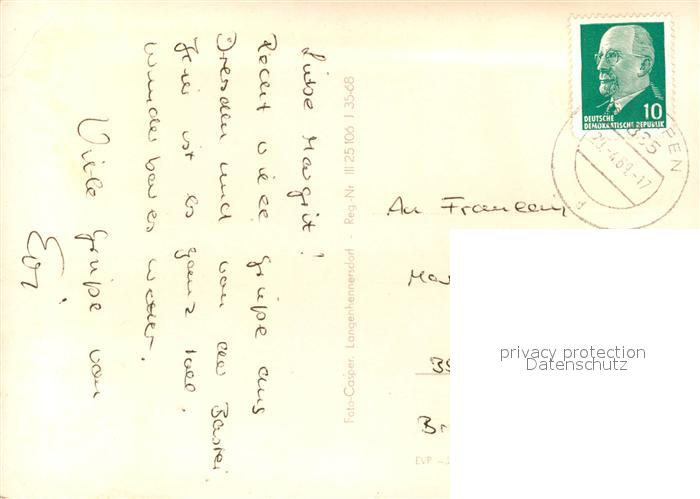 Liebe Margrit!
Recht viele Grüße aus
Dresden und von der Bastei.
Hier ist es ganz toll,
wunderbares wetter.
Viele Grüße von
Evi
Foto-Casper, Langenhennersdorf - Reg.-Nr III 25 106 I 35-68
10
DEUTSCHE
DEMOKRATISCHE REPUBLIK
835
An Fräulein
Mar
Br
EVP
privacy protection
Datenschutz